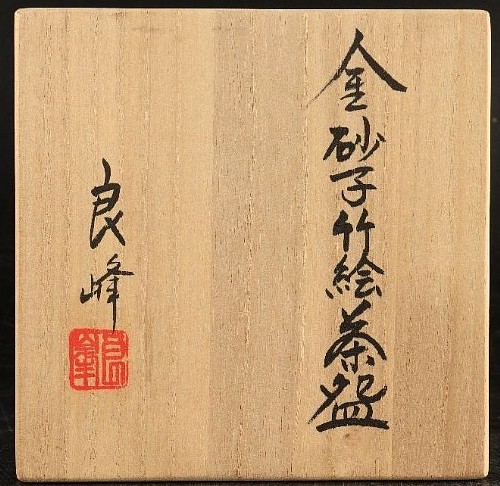 金砂子竹絵茶盌
良峰